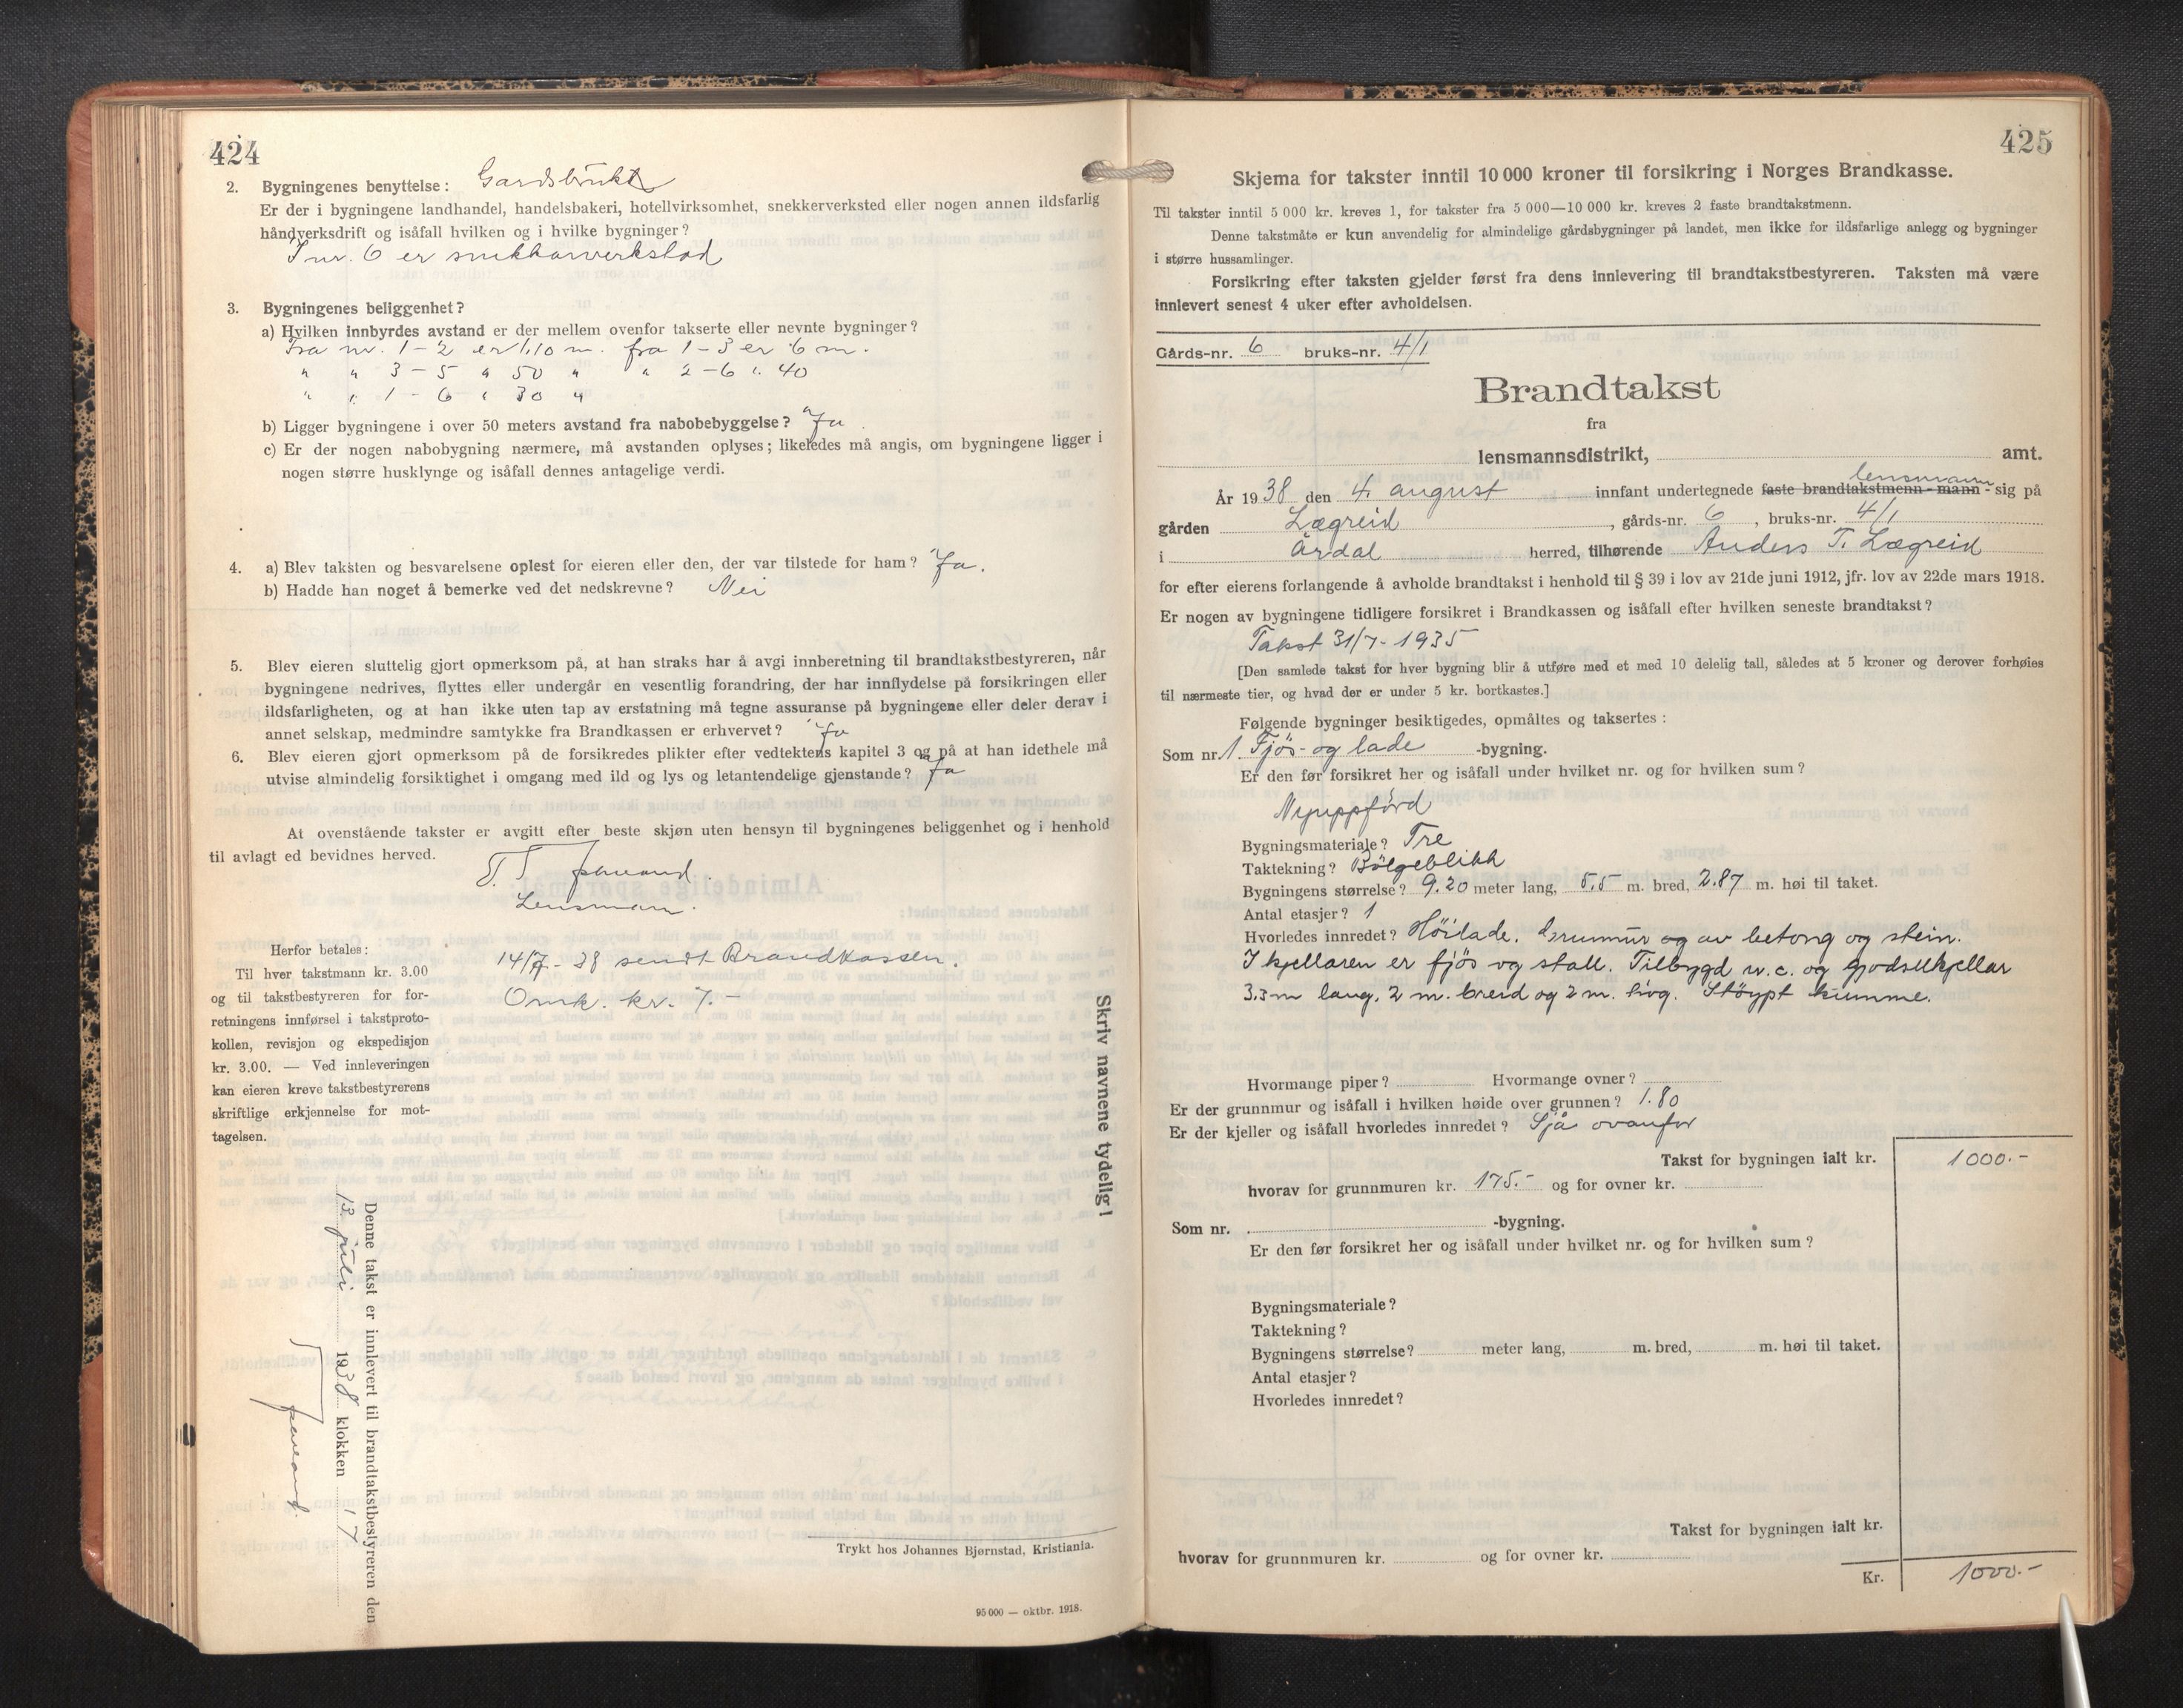 424
2. Bygningenes benyttelse: Gardsbruk
Er der i bygningene landhandel, handelsbakeri, hotellvirksomhet, snekkerverksted eller nogen annen ildsfarlig
håndverksdrift og isåfall hvilken og i hvilke bygninger?
I nr. 6 er snikkarverkstad
3. Bygningenes beliggenhet?
a) Hvilken innbyrdes avstand er der mellem ovenfor takserte eller nevnte bygninger?
Fra nr. 1-2 er 1,10 m. fra 1-3 er 6 m.
" " 3-5 " 50 " " 2-6 " 40
" " 1-6 " 30 "
b) Ligger bygningene i over 50 meters avstand fra nabobebyggelse? Ja
c) Er der nogen nabobygning nærmere, må avstanden oplyses; likeledes må angis, om bygningene ligger i
nogen større husklynge og isåfall dennes antagelige verdi.
4. a) Blev taksten og besvarelsene oplest for eieren eller den, der var tilstede for ham? Ja.
b) Hadde han noget å bemerke ved det nedskrevne? Nei
5. Blev eieren sluttelig gjort opmerksom på, at han straks har å avgi innberetning til brandtakstbestyreren, når
bygningene nedrives, flyttes eller undergår en vesentlig forandring, der har innflydelse på forsikringen eller
ildsfarligheten, og at han ikke uten tap av erstatning må tegne assuranse på bygningene eller deler derav i
annet selskap, medmindre samtykke fra Brandkassen er erhvervet? Ja
6. Blev eieren gjort opmerksom på de forsikredes plikter efter vedtektens kapitel 3 og på at han idethele må
utvise almindelig forsiktighet i omgang med ild og lys og letantendelige gjenstande? Ja
At ovenstående takster er avgitt efter beste skjøn uten hensyn til bygningenes beliggenhet og i henhold
til avlagt ed bevidnes herved.
Lensmann.
Herfor betales:
Til hver takstmann kr. 3.00
og til takstbestyreren for for-
retningens innførsel i takstproto-
kollen, revisjon og ekspedisjon
kr. 3.00. — Ved innleveringen
kan eieren kreve takstbestyrerens
skriftlige erkjennelse for mot-
tagelsen.
14/7-38 sendt Brandkassen.
Omk. kr. 7.-
Skriv navnene tydelig!
Denne takst er innlevert til brandtakstbestyreren den
13 juli 1938 klokken 17
Trykt hos Johannes Bjørnstad, Kristiania.
95 000 — oktbr. 1918.
425
Skjema for takster inntil 10 000 kroner til forsikring i Norges Brandkasse.
Til takster inntil 5 000 kr. kreves 1, for takster fra 5 000—10 000 kr. kreves 2 faste brandtakstmenn.
Denne takstmåte er kun anvendelig for almindelige gårdsbygninger på landet, men ikke for ildsfarlige anlegg og bygninger
i større hussamlinger.
Forsikring efter taksten gjelder først fra dens innlevering til brandtakstbestyreren. Taksten må være
innlevert senest 4 uker efter avholdelsen.
Gårds-nr. 6 bruks-nr. 4/1
Brandtakst
fra
lensmannsdistrikt, amt.
lensmann
År 1938 den 4. august innfant undertegnede faste brandtakstmenn - mann - sig på
gården Lægreid, gårds-nr. 6, bruks-nr. 4/1
i Årdal herred, tilhørende Anders T. Lægreid
for efter eierens forlangende å avholde brandtakst i henhold til § 39 i lov av 21de juni 1912, jfr. lov av 22de mars 1918.
Er nogen av bygningene tidligere forsikret i Brandkassen og isåfall efter hvilken seneste brandtakst?
Takst 31/7-1935
[Den samlede takst for hver bygning blir å utføre med et med 10 delelig tall, således at 5 kroner og derover forhøies
til nærmeste tier, og hvad der er under 5 kr. bortkastes.]
Følgende bygninger besiktigedes, opmåltes og taksertes:
Som nr. 1 Fjös- og lade -bygning.
Er den før forsikret her og isåfall under hvilket nr. og for hvilken sum?
Nyuppförd
Bygningsmateriale? Tre
Taktekning? Bölgeblikk
Bygningens størrelse? 9.20 meter lang, 5.5 m. bred, 2.87 m. høi til taket.
Antal etasjer? 1
Hvorledes innredet? Höilade. Grunnur og av betong og stein.
I kjellaren er fjös og stall. Tilbygd w.c. og gjodselkjellar
3.3 m lang, 2 m. breid og 2 m. hög. Stöypt kumme.
Hvormange piper? Hvormange ovner?
Er der grunnmur og isåfall i hvilken høide over grunnen? 1.80
Er der kjeller og isåfall hvorledes innredet? Sjå ovanfor
Takst for bygningen ialt kr. 1000.-
hvorav for grunnmuren kr. 175.- og for ovner kr.
Som nr. -bygning.
Er den før forsikret her og isåfall under hvilket nr. og for hvilken sum?
Bygningsmateriale?
Taktekning?
Bygningens størrelse? meter lang, m. bred, m. høi til taket.
Antal etasjer?
Hvorledes innredet?
Takst for bygningen ialt kr.
hvorav for grunnmuren kr. og for ovner kr.
Kr. 1000.-